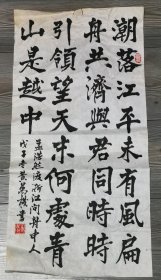 潮落江平未有風扁
舟共濟與君同時時
引領望天末何處青
山是越中
孟浩然渡浙江問舟中人
戊子冬黃書